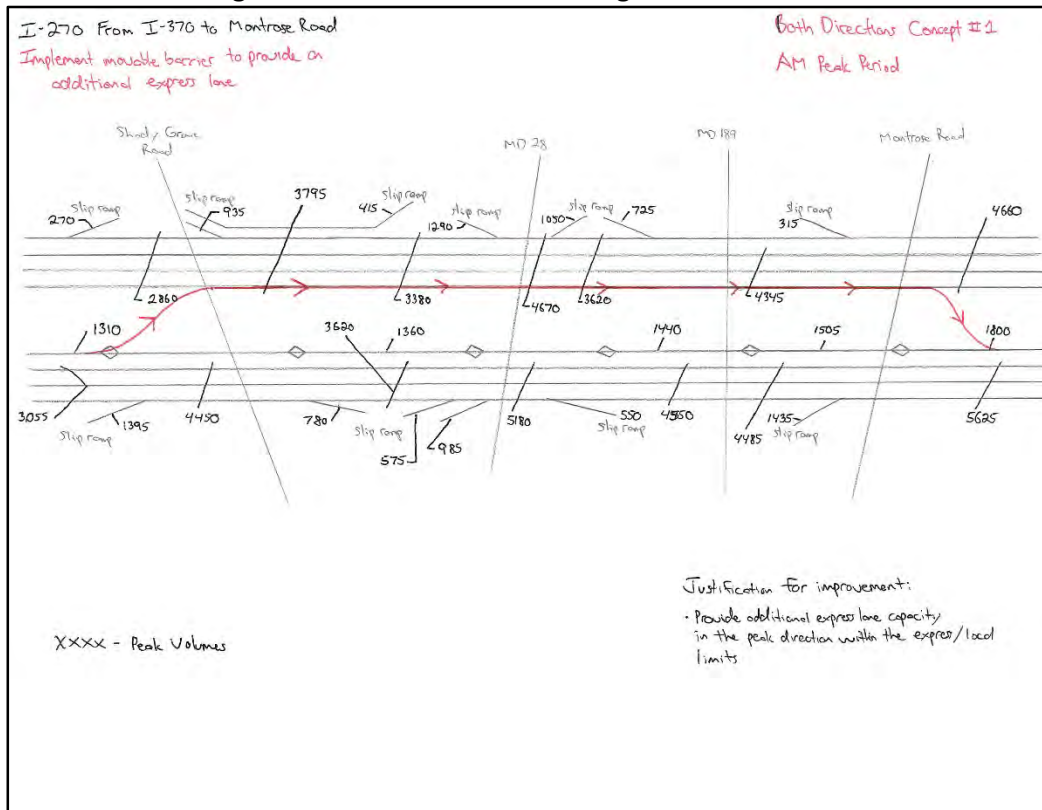 I-270 From I-370 to Montrose Road
Implement movable barrier to provide an
additional express lane
Both Directions Concept #1
AM Peak Period
Shady Grove
Road
MD 28
MD 189
Montrose Road
slip ramp
270
slip ramp
935
3795
slip ramp
415
slip ramp
1290
slip ramp
1050
725
slip ramp
315
4660
2860
3380
4670
3620
4345
1310
3620
1360
1440
1505
1800
3055
slip ramp
1395
4450
780
slip ramp
575
985
5180
550
slip ramp
4550
4485
1435
slip ramp
5625
XXXX - Peak Volumes
Justification for improvement:
• Provide additional express lane capacity
in the peak direction within the express/local
limits